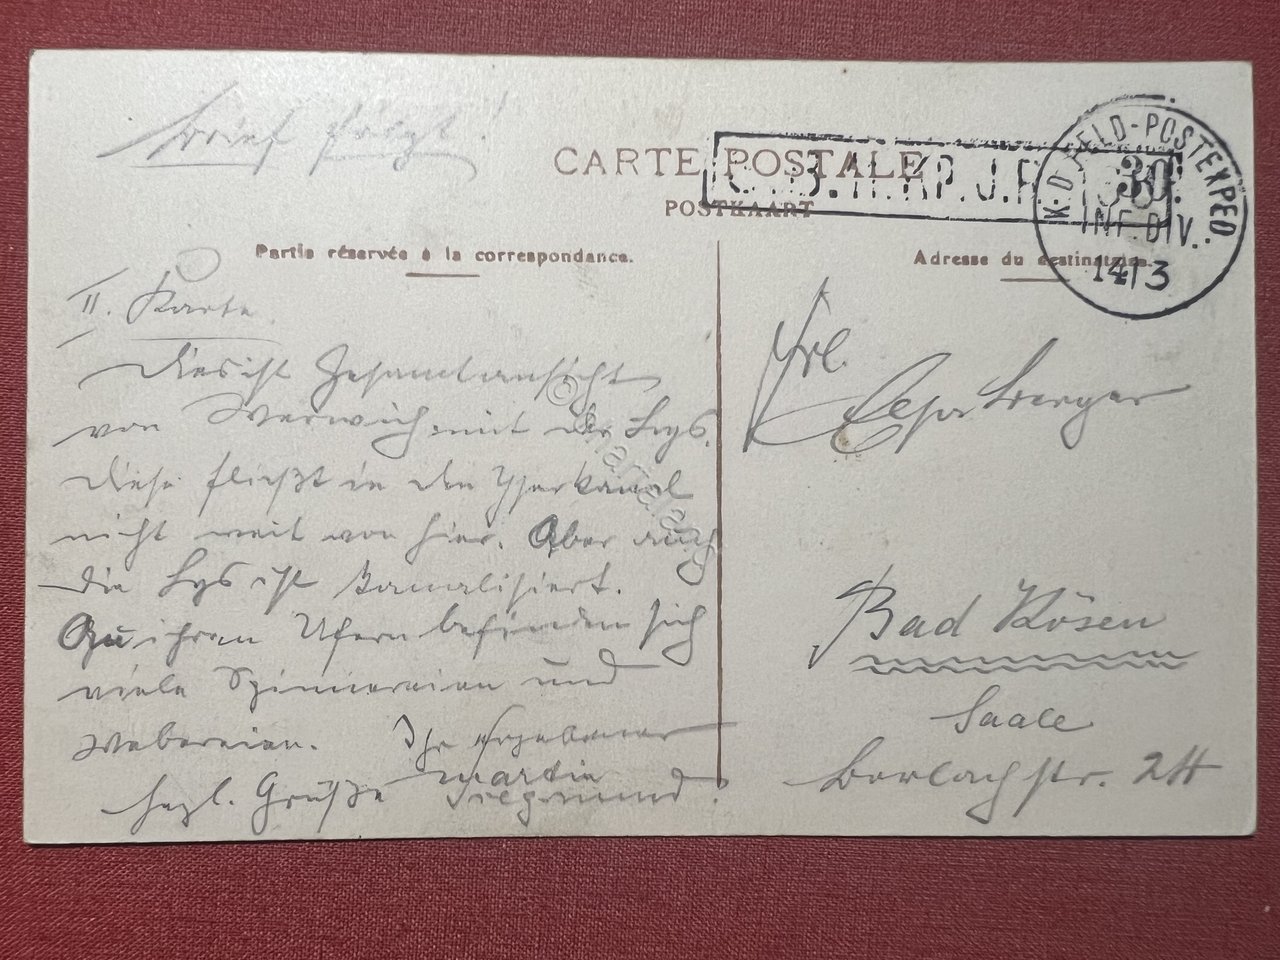 Brief folgt!
CARTE POSTALE
POSTKAART
K.D. FELD-POSTEXPED
30.
INF. DIV.
14/3
Partie réservée à la correspondance.
Adresse du destinataire.
II. Karte
Dies ist Gesamtansicht
von Werwich mit der Lys.
Diese fließt in den Yserkanal
nicht weit von hier. Aber auch
die Lys ist kanalisiert.
An ihren Ufern befinden sich
viele Spinnereien und
Webereien. Ihr ergebener
Martin
Hrzl. Grüße Siegmund.
Frl.
Berger
Bad Kösen
Saale
Borlachstr.